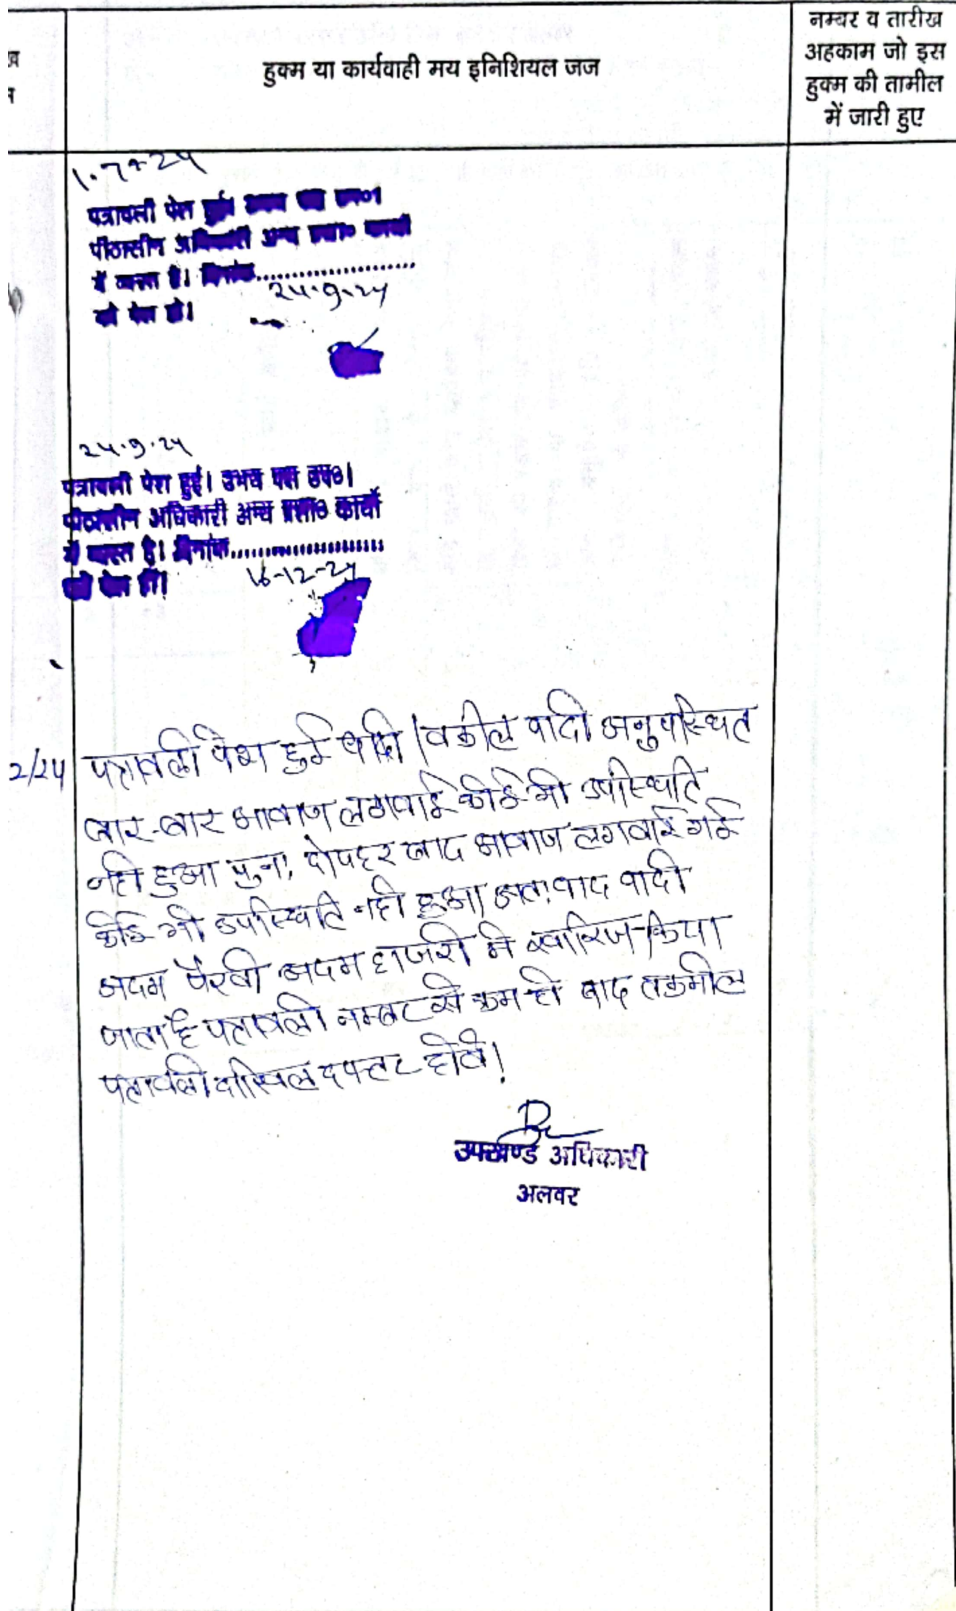 हुक्म या कार्यवाही मय इनिशियल जज
नम्बर व तारीख
अहकाम जो इस
हुक्म की तामील
में जारी हुए
1.7.24
पत्रावली पेश हुई। उभय पक्ष उप०।
पीठासीन अधिकारी अन्य प्रशा० कार्यो
में व्यस्त है। दिनांक......................
24.9.24
को पेश हो।
24.9.24
पत्रावली पेश हुई। उभय पक्ष उप०।
पीठासीन अधिकारी अन्य प्रशा० कार्यो
में व्यस्त है। दिनांक......................
16-12-24
को पेश हो।
2/24 पत्रावली पेश हुई वादी/वकील वादी अनुपस्थित
बार-बार आवाज लगवाई कोई भी उपस्थिति
नही हुआ पुनः दोपहर बाद आवाज लगवाई गई
कोई भी उपस्थिति नही हुआ अतः वाद वादी
अदम पैरवी अदम हाजरी मे खारिज किया
जाता है पत्रावली नम्बर से कम हो बाद तकमील
पत्रावली दाखिल दफ्तर होवे।
उपखण्ड अधिकारी
अलवर